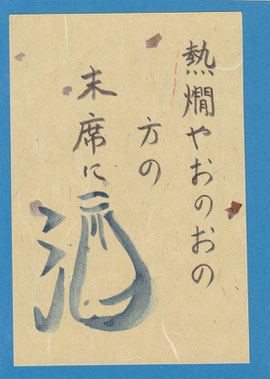 熱燗やおのおの
方の
末席に
酒